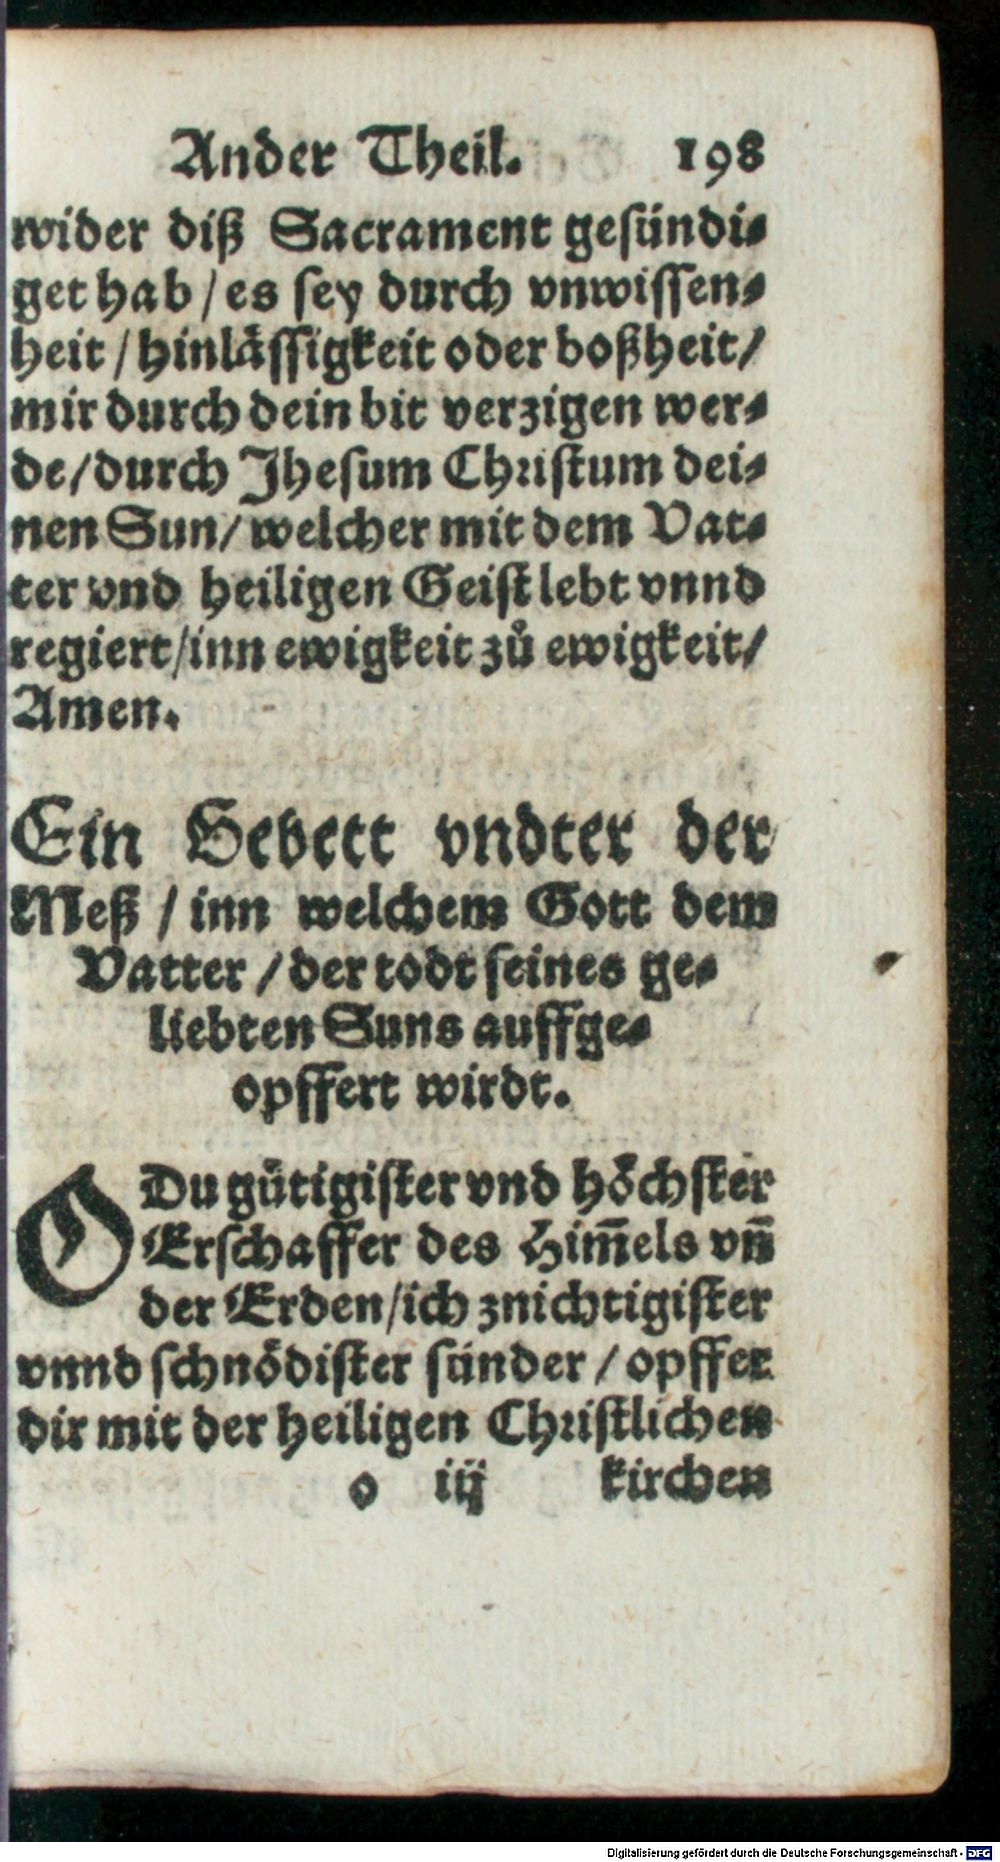 Ander Theil. 198
wider diß Sacrament gesündi⸗
get hab / es sey durch vnwissen⸗
heit / hinlässigkeit oder boßheit /
mir durch dein bit verzigen wer⸗
de / durch Jhesum Christum dei⸗
nen Sun / welcher mit dem Vat⸗
ter vnd heiligen Geist lebt vnnd
regiert / inn ewigkeit zů ewigkeit /
Amen.
Ein Gebett vndter der
Meß / inn welchem Gott dem
Vatter / der todt seines ge⸗
liebten Suns auffge⸗
opffert wirdt.
O Du gütigister vnd höchster
Erschaffer des Him̅els vn̅
der Erden / ich znichtigister
vnnd schnödister sünder / opffer
dir mit der heiligen Christlichen
o iij kirchen
Digitalisierung gefördert durch die Deutsche Forschungsgemeinschaft - DFG